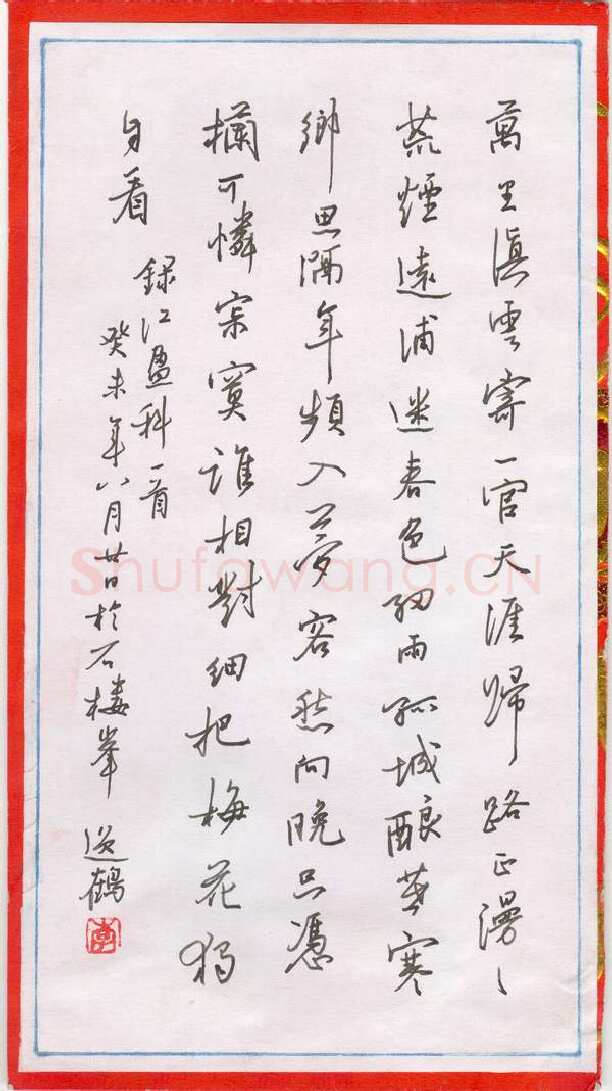 萬里滇雲寄一官天涯歸路正漫々
荒煙遠浦迷春色細雨孤城酿暮寒
鄉思隔年頻入夢客愁向晚只憑
欄可憐寂寞誰相對細把梅花獨
自看
録江盈科一首
癸未年八月廿日於石樓峯 鶴
Shufawang.CN